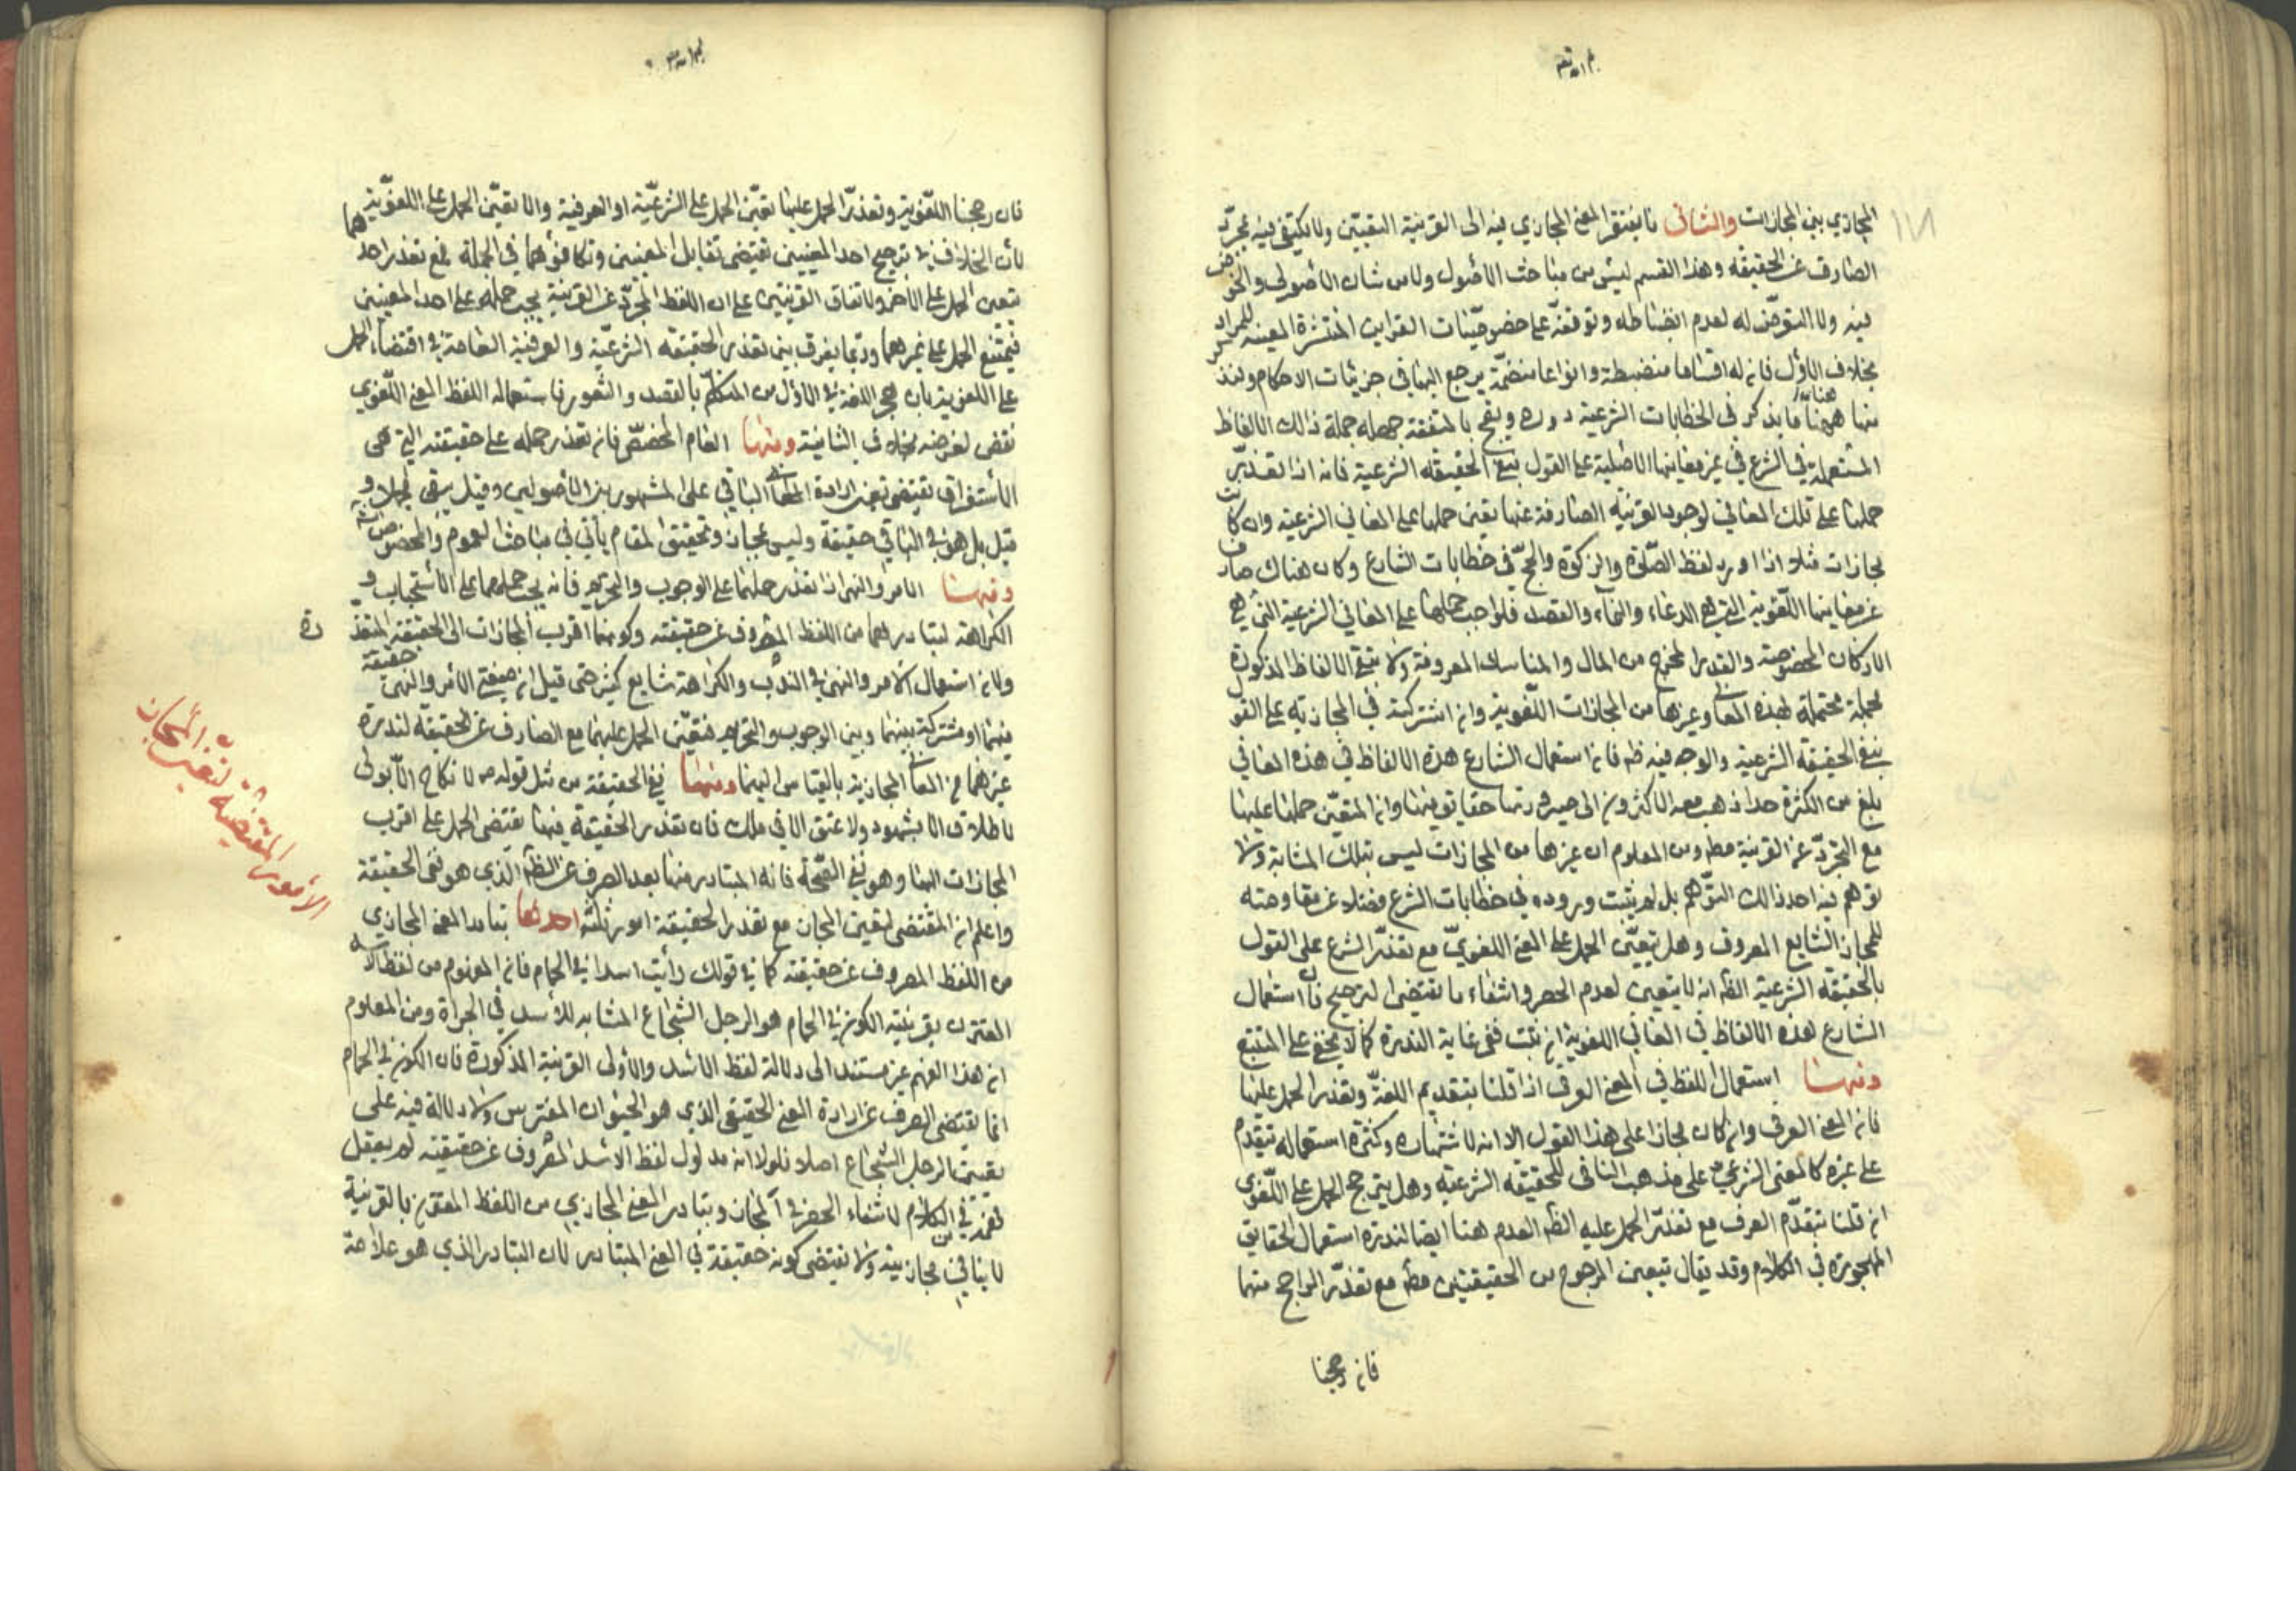 بم الله تعا
المجازي بين المجازات والثاني ما يفتقر المعنى المجازي فيه الى القرينة التعيين ولا يكتفى فيه بمجرّد
الصارف عن الحقيقه وهذا القسم ليس من مباحث الأصول ولا من شان الأصولي والخوض
فيه ولا التعرّض له لعدم انضباطه وتوقفه على خصوصيّات القراين المنتشرة المعينه للمراد
بخلاف الأول فانه له اقساما منضبطة وانواعا منضمّة يرجع اليها في جزئيات الاحكام ولنذكر
منها ههنا ما يذكر في الخطابات الشرعية دوره ويقع بالمتفقه جهله جملة ذالك الالفاظ
المستعملة في الشرع في غير معانيها الأصلية على القول بنفي الحقيقه الشرعية فانه اذا تعذّر
حملها على تلك المعاني لوجود القرينه الصارفة عنها تعين حملها على المعاني الشرعيه وان كانت
مجازات مثلا اذا ورد لفظ الصّلوة والزكوة والحجّ في خطابات الشارع وكان هناك صارف
عن معاينها اللّغوية التي هي الدعاء والنماء والقصد فلواجب حملها على المعاني الشرعية التي هي
الاركان المخصوصة والقدر المخرج من المال والمناسك المعروفة ولا تبقى الالفاظ المذكورة
مجملة محتملة لهذه المعاني وغيرها من المجازات اللّغوية وان اشتركت في المجازيه على القول
بنفي الحقيقه الشرعية والوجه فيه ظ فانه استعمال الشارع هذه الالفاظ في هذه المعاني
بلغ من الكثرة حدا ذهب معه الاكثرون الى صيرورتها حقايق فيها وان المتعيّن حملها عليها
مع التجرّد عن القرينة مط ومن المعلوم ان غيرها من المجازات ليس بتلك المثابة ولا
توهم فيه احد ذالك التوّهم بل لم يثبت وروده في خطابات الشرع فضلا عن مقاومته
للمجاز الشايع المعروف وهل يتعيّن الحمل على المعنى اللغويّ مع تعذّر الشرع على القول
بالحقيقه الشرعيّة الظ انه لا يتعين لعدم الحصر وانتفاء ما يقتضي الترجيح فان استعمال
الشارع لهذه الالفاظ في المعاني اللغوية ان ثبت ففي غاية الندرة كما لا يخفى على المتتبع
ومنها استعمال اللفظ في المعنى العرفي اذا قلنا بتقديم اللغة وتعذر الحمل عليها
فانه المعنى العرفي وان كان مجازا على هذا القول الا انه لاشتهاره وكثرة استعماله يتقدم
على غيره كالمعنى الشرعي على مذهب النافي للحقيقه الشرعيه وهل يترجح الحمل على اللّغوي
ان قلنا بتقدّم العرف مع تعذّر الحمل عليه الظ العدم هنا ايضا لندرة استعمال الحقايق
المهجورة في الكلام وقد يقال بتعين المرجوح من الحقيقتين مط مع تعذّر الراجح منهما
فان رجحنا
فان رجحنا اللّغوية وتعذّر الحمل عليها تعيّن الحمل على الشرعيّة او العرفية والا تعيّن الحمل على اللغويّة
لأن الخلاف في ترجيح احد المعنيين يقتضي تقابل المعنيين وتكافؤهما في الجملة فمع تعذر احدهما
يتعين الحمل على الأخر ولاتفاق الفريقين على ان اللفظ المجرّد عن القرينة يجب حمله على احد المعنيين
فيمتنع الحمل على غيرهما وربما يفرق بين تعذر الحقيقه الشرعيّة والعرفية العامة في اقتضاء الحمل
على اللغوية بان هجر اللغة في الاول من المتكلّم بالقصد والشعور فاستعماله اللفظ المعنى اللّغوي
نقض لغرضه بخلاف الثانية ومنها العام المخصّص فانه تعذر حمله على حقيقته التي هي
الأستغراق يقتضي تعين ارادة تمام الباقي على المشهور بين الأصوليين وقيل يبقى مجملا و
قيل بل هو في الباقي حقيقة وليس بمجاز وتحقيق المقام يأتي في مباحث العموم والخصوص انش
ومنها الامر والنهي اذا تعذر حملهما على الوجوب والتحريم فانه يجب حملهما على الأستحباب و
الكراهة لتبادرهما من اللفظ المصروف عن حقيقته وكونهما اقرب المجازات الى الحقيقة المتعذرة
ولانه استعمال الأمر والنهي في الندب والكراهة شايع كثير حتى قيل انه صيغتي الأمر والنهي حقيقة
فيهما او مشتركة بينهما وبين الوجوب والتحريم فتعيّن الحمل عليهما مع الصارف عن الحقيقة لندرة
غيرهما من المعاني المجازية بالقياس اليهما ومنها نفي الحقيقة من مثل قوله ص لا نكاح الاّ بولى
لا طلاق الا بشهود ولا عتق الا في ملك فان تعذر الحقيقة فيها يقتضي الحمل على اقرب
المجازات اليها وهو نفي الصّحة فانه المتبادر منها بعد الصرف عن الظ الّذي هو نفي الحقيقة
واعلم انه المقتضي لتعين المجاز مع تعذر الحقيقة امور ثلثة احدها تبادر المعنى المجازي
من اللفظ المصروف عن حقيقته كما في قولك رأيت اسدا في الحمام فانه المفهوم من لفظ الأسد
المقترن بقرينة الكون في الحمام هو الرجل الشجاع المشابه للأسد في الجراة ومن المعلوم
ان هذا الفهم غير مستند الى دلالة لفظ الأسد والأولى القرينة المذكورة فان الكون في الحمام
انما يقتضي الصرف عن ارادة المعنى الحقيقي الذي هو الحيوان المفترس ولا دلالة فيه على
تعيين الرجل الشجاع اصلا فلولا انه مدلول لفظ الأسد المصروف عن حقيقته لم يعقل
تعينه في الكلام لانتفاء الحصر في المجاز وتبادر المعنى المجازي من اللفظ المقترن بالقرينة
لا ينافي مجازيته ولا يقتضي كونه حقيقة في المعنى المتبادر لان التبادر الذي هو علامة
الأمور المقتضية لتعين المجاز